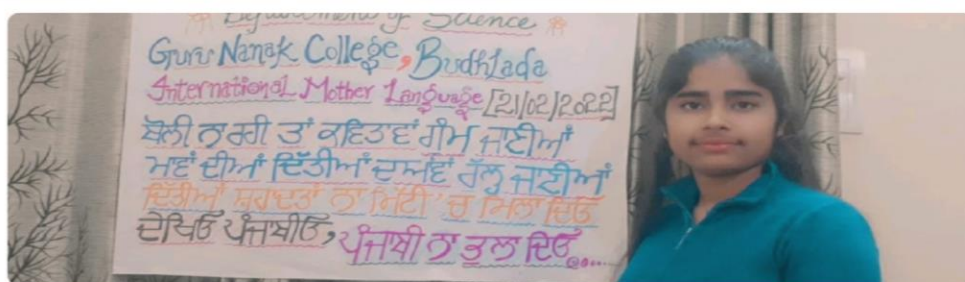 Department of Science
Guru Nanak College, Budhlada
International Mother Language [21/02/2022]
ਬੋਲੀ ਨਾ ਰਹੀ ਤਾਂ ਕਵਿਤਾਵਾਂ ਗੁੰਮ ਜਾਣੀਆਂ
ਮਾਵਾਂ ਦੀਆਂ ਦਿੱਤੀਆਂ ਦੁਆਵਾਂ ਰੁੱਲ ਜਾਣੀਆਂ
ਦਿੱਤੀਆਂ ਸ਼ਹਾਦਤਾਂ ਨਾ ਮਿੱਟੀ 'ਚ ਮਿਲਾ ਦਿਓ
ਦੇਖਿਓ ਪੰਜਾਬੀਓ, ਪੰਜਾਬੀ ਨਾ ਭੁਲਾ ਦਿਓ....